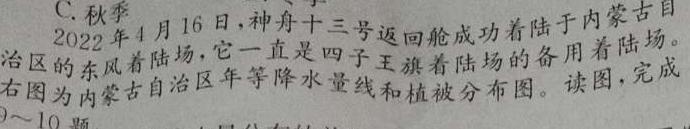 C. 秋季
2022年4月16日,神舟十三号返回舱成功着陆于内蒙古自
治区的东风着陆场,它一直是四子王旗着陆场的备用着陆场。
右图为内蒙古自治区年等降水量线和植被分布图。读图,完成
9～10题